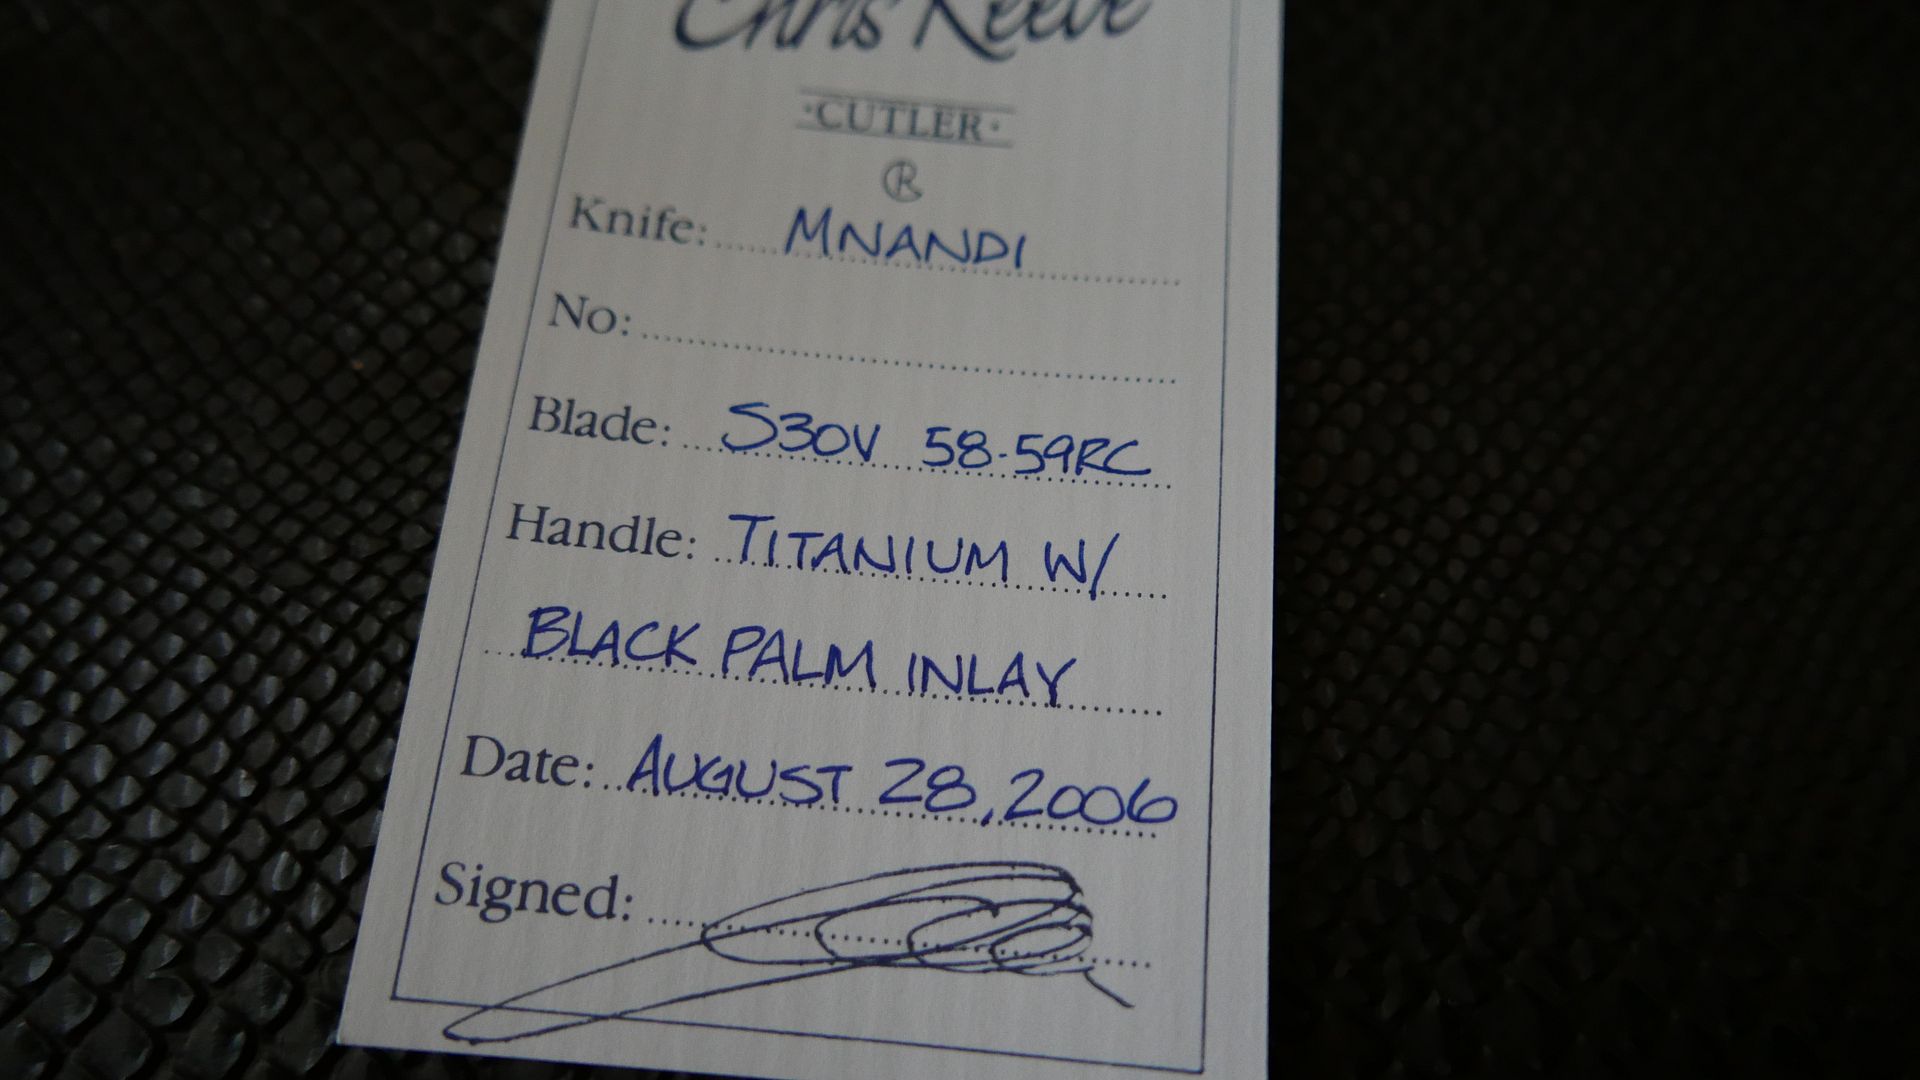 Chris Reeve
·CUTLER·
CR
Knife: MNANDI
No:
Blade: S30V 58-59RC
Handle: TITANIUM W/
BLACK PALM INLAY
Date: AUGUST 28, 2006
Signed: